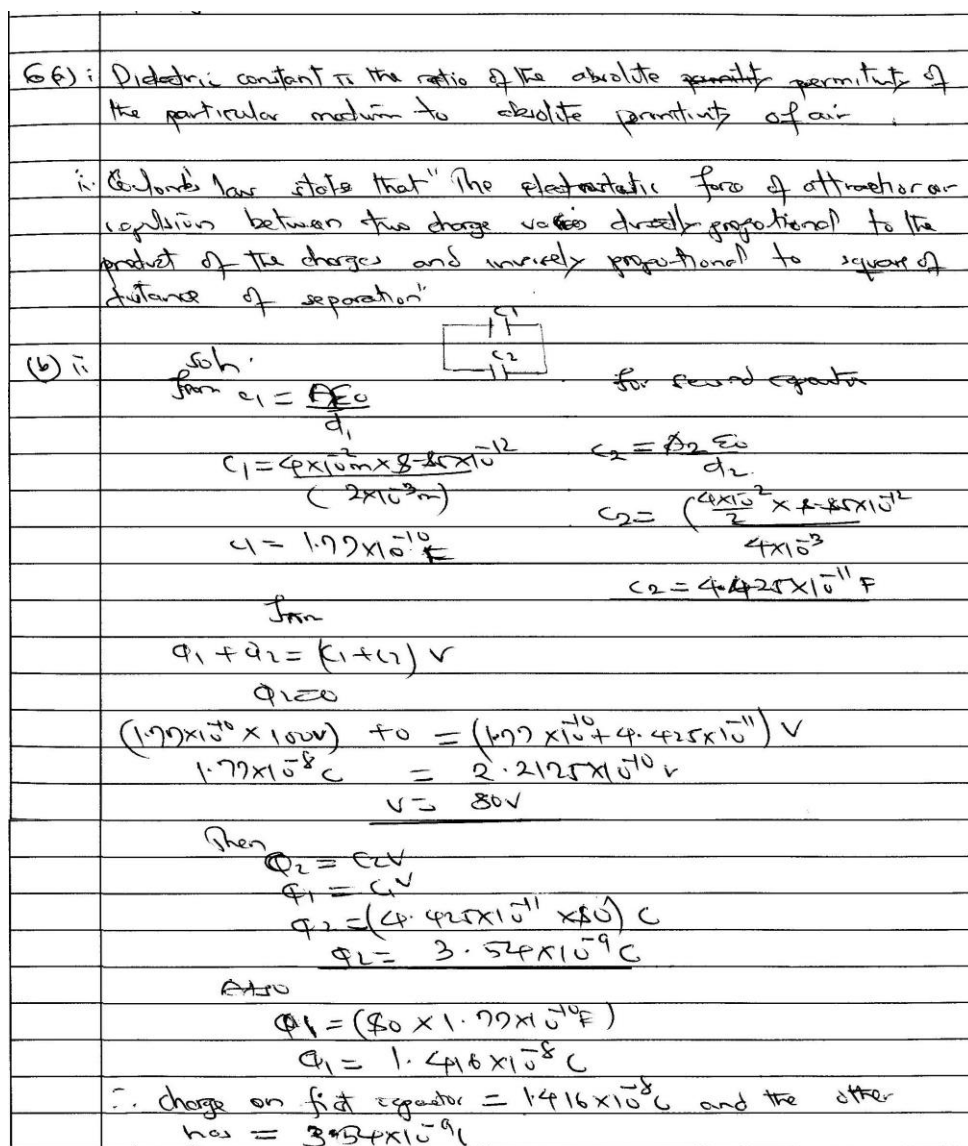 6(a) i Dielectric constant is the ratio of the absolute permitivity of
the particular medium to absolute permitivity of air.
ii. Coulomb's law state that "The electrostatic force of attraction or
repulsion between two charge varies directly propotional to the
product of the charges and inversely propotional to square of
distance of separation"
C1
C2
(b) ii soln.
from c1 = Aε0 / d1
for second capacitor
C1 = 4×10^-2 m × 8.85×10^-12 / (2×10^-3 m)
C2 = A2 ε0 / d2.
C2 = (4×10^-2 / 2 × 8.85×10^-12 / 4×10^-3
C1 = 1.77×10^-10 F
C2 = 4.425×10^-11 F
from
Q1 + Q2 = (C1 + C2) V
Q2 = 0
(1.77×10^-10 × 100V) + 0 = (1.77×10^-10 + 4.425×10^-11) V
1.77×10^-8 C = 2.2125×10^-10 V
V = 80V
Then
Q2 = C2V
Q1 = C1V
Q2 = (4.425×10^-11 × 80) C
Q2 = 3.54×10^-9 C
Also
Q1 = (80 × 1.77×10^-10 F)
Q1 = 1.416×10^-8 C
∴ charge on first capacitor = 1.416×10^-8 C and the other
has = 3.54×10^-9 C